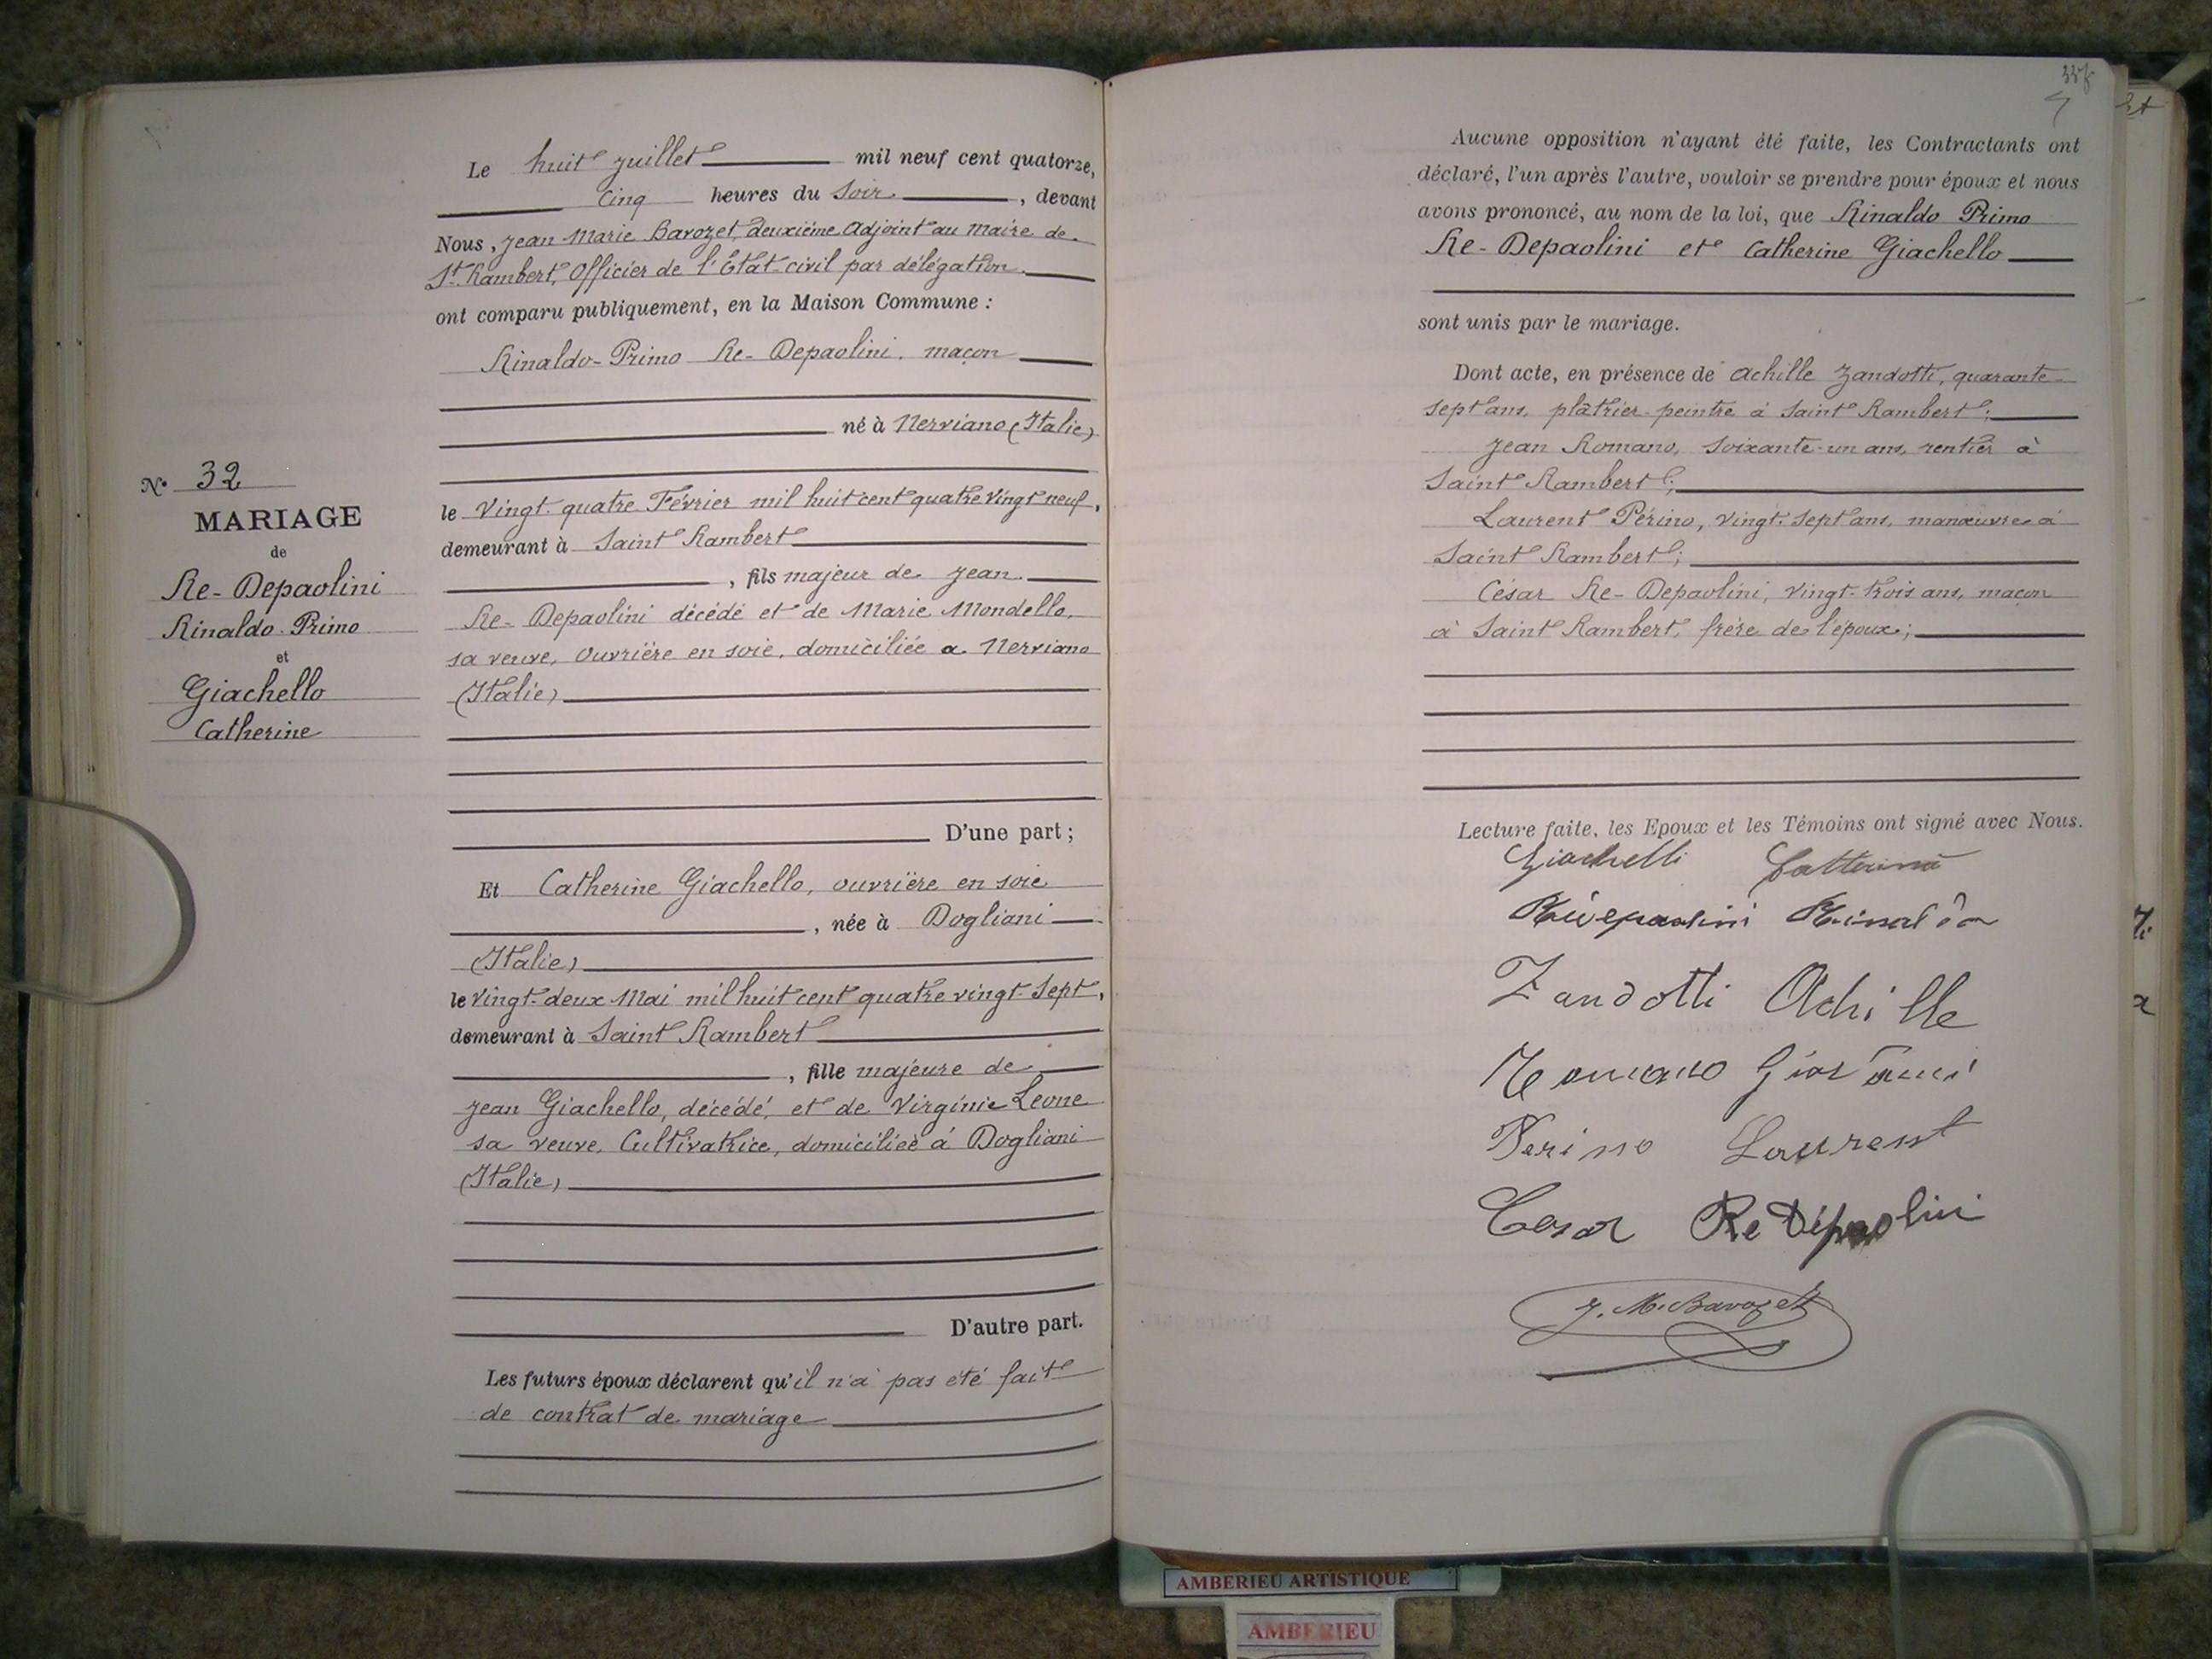 Le huit juillet mil neuf cent quatorze,
Cinq heures du Soir, devant
Nous, Jean Marie Bavozet, deuxième Adjoint au Maire de
St Rambert, Officier de l'Etat-civil par délégation
ont comparu publiquement, en la Maison Commune :
Rinaldo-Primo Re-Depaolini, maçon
né à Nerviano (Italie)
le Vingt-quatre Février mil huit cent quatre vingt neuf,
demeurant à Saint Rambert
, fils majeur de Jean
Re-Depaolini décédé et de Marie Mondello,
sa veuve, Ouvrière en soie, domiciliée a Nerviano
(Italie)
D'une part ;
N° 32
MARIAGE
de
Re-Depaolini
Rinaldo-Primo
et
Giachello
Catherine
Et Catherine Giachello, ouvrière en soie
, née à Dogliani
(Italie)
le vingt-deux Mai mil huit cent quatre vingt-sept,
demeurant à Saint Rambert
, fille majeure de
Jean Giachello, décédé, et de Virginie Leone
sa veuve, Cultivatrice, domiciliée à Dogliani
(Italie)
D'autre part.
Les futurs époux déclarent qu'il n'a pas été fait
de contrat de mariage
Aucune opposition n'ayant été faite, les Contractants ont
déclaré, l'un après l'autre, vouloir se prendre pour époux et nous
avons prononcé, au nom de la loi, que Rinaldo Primo
Re-Depaolini et Catherine Giachello
sont unis par le mariage.
Dont acte, en présence de Achille Zandotti, quarante-
sept ans, plâtrier-peintre à Saint Rambert ;
Jean Romano, soixante-un ans, rentier à
Saint Rambert ;
Laurent Périno, vingt-sept ans, manœuvre à
Saint Rambert ;
César Re-Depaolini, vingt-trois ans, maçon
à Saint Rambert, frère de l'époux ;
Lecture faite, les Epoux et les Témoins ont signé avec Nous.
Giachelli Catterina
Rinaldo
Zandotti Achille
Romano Giovanni
Perino Laurent
Cesar Re Dépaolini
J. M. Bavozet
AMBERIEU ARTISTIQUE
AMBERIEU